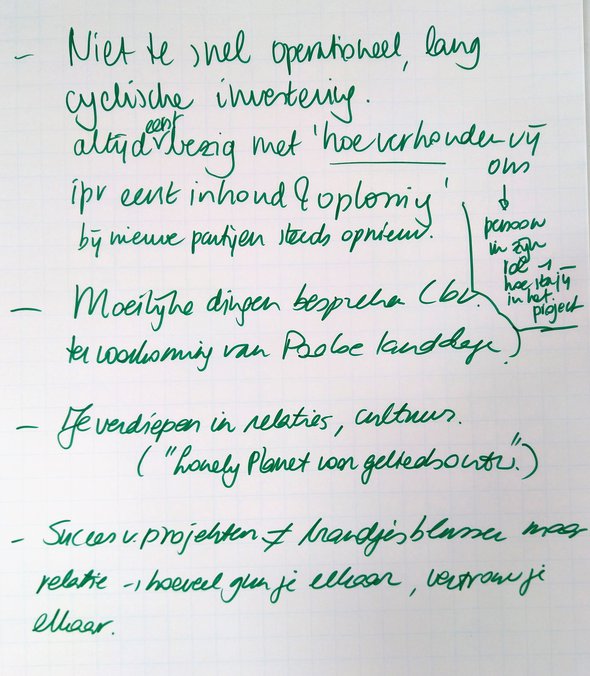 - Niet te snel operationeel, lang
cyclische investering.
altijd eerst bezig met 'hoe verhouden wij
ons
ipv eerst inhoud & oplossing'
bij nieuwe partijen steeds opnieuw.
↓
persoon
in zijn
rol →
hoe sta jij
in het
project
- Moeilijke dingen bespreken (bv.
ter voorkoming van Poolse landdage)
- Je verdiepen in relaties, cultuur.
("Lonely Planet van gebiedsontw.")
- Succes v. projekten ≠ brandjes blussen maar
relatie → hoeveel gun je elkaar, vertrouw je
elkaar.